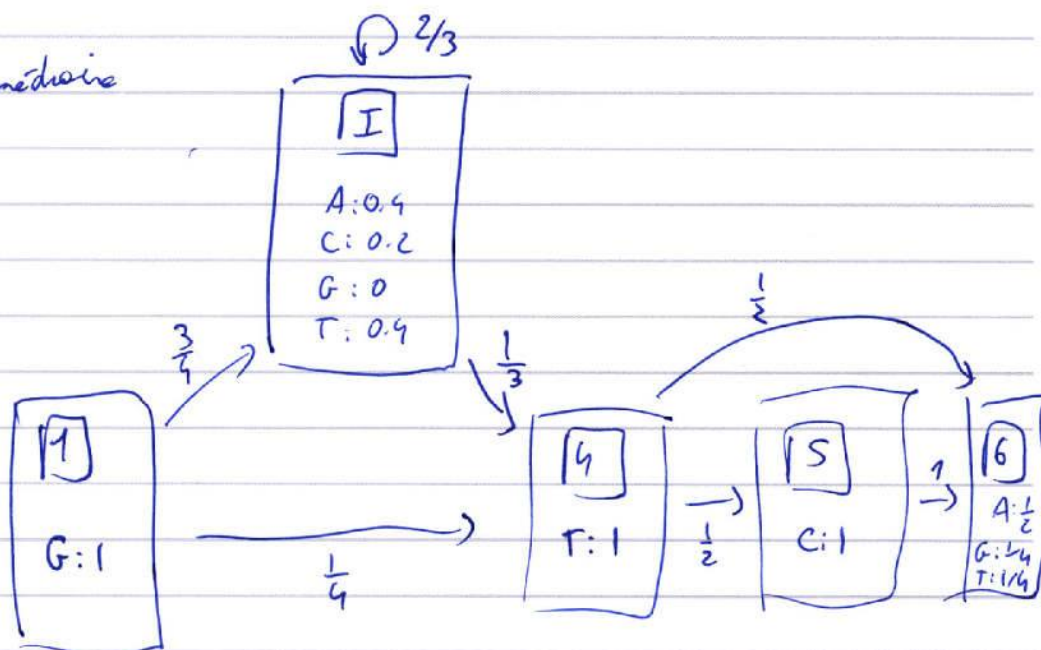 2/3
I
A: 0.4
C: 0.2
G: 0
T: 0.4
3/4
1/3
1/2
1
G: 1
1/4
4
T: 1
1/2
5
C: 1
1
6
A: 1/2
G: 1/4
T: 1/4